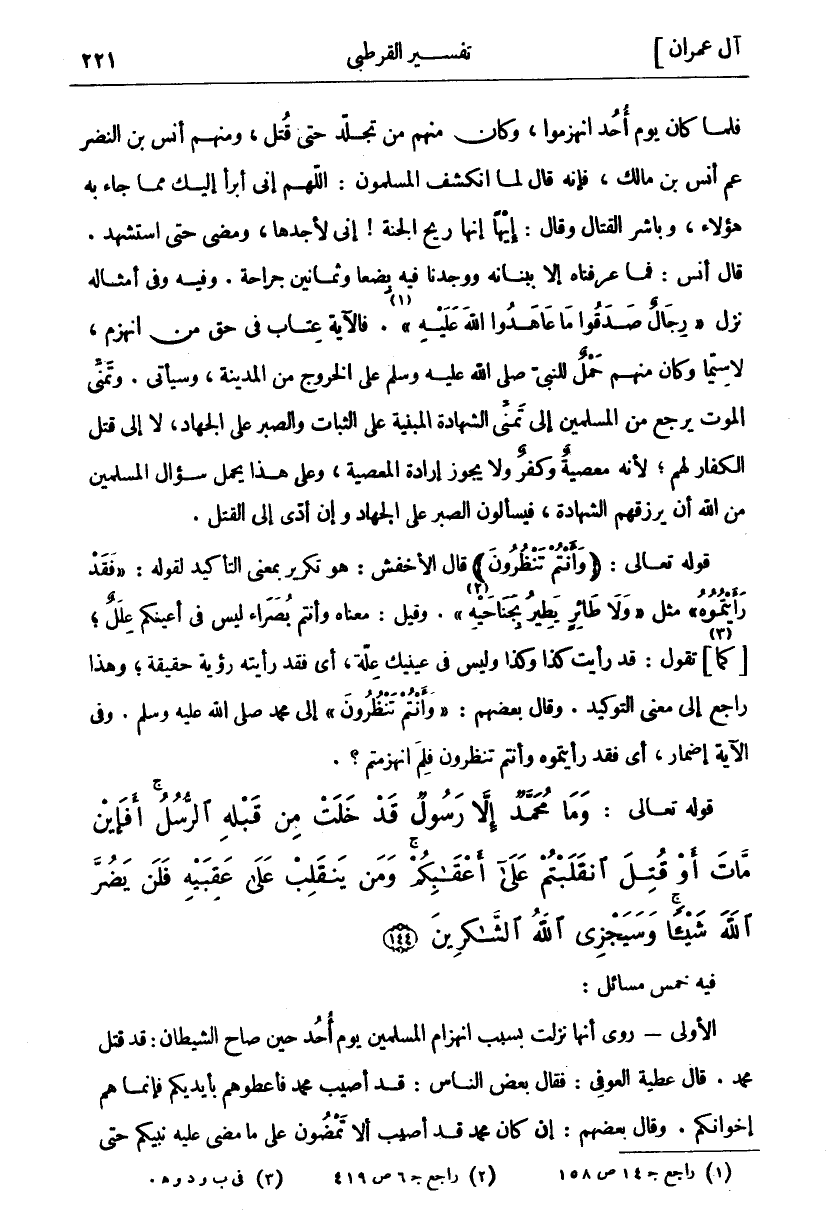 آل عمران ] تفســير القرطبى ٢٢١
فلمــا كان يوم أُحُد انهزموا ، وكان منهم من تجـلّد حتى قُتل ، ومنهــم أنس بن النضر
عم أنس بن مالك ، فإنه قال لمـا انكشف المسلمون : اللّهــم إنى أبرأ إليـك ممـا جاء به
هؤلاء ، وباشر القتال وقال : إِيْهًا إنها ريح الجنة ! إنى لأجدها ، ومضى حتى استشهد .
قال أنس : فمـا عرفناه إلا ببنـانه ووجدنا فيه بِضعا وثمـانين جراحة . وفيـه وفى أمثـاله
نزل « رِجَالٌ صَـدَقُوا مَا عَاهَـدُوا اللهَ عَلَيْـهِ (١) » . فالآية عِتـاب فى حق من انهزم ،
لاسيّما وكان منهـم حَمْلٌ للنبىّ صلى الله عليـه وسلم على الخروج من المدينة ، وسيأتى . وتَمَنِّى
الموت يرجع من المسلمين إلى تَمَنِّى الشهادة المبنية على الثبات والصبر على الجهاد، لا إلى قتل
الكفار لهم ؛ لأنه معصيةٌ وكفرٌ ولا يجوز إرادة المعصية ، وعلى هـذا يحمل سـؤال المسلمين
من الله أن يرزقهم الشهادة ، فيسألون الصبر على الجهاد وإن أدّى إلى القتل .
قوله تعـالى : ﴿ وَأَنْتُمْ تَنْظُرُونَ ﴾ قال الأخفش : هو تكرير بمعنى التأكيد لقوله : «فَقَدْ
رَأَيْتُمُوهُ» مثل « وَلَا طَائِرٍ يَطِيرُ بِجَنَاحَيْهِ (٢) » . وقيل : معناه وأنتم بُصَراء ليس فى أعينكم عِلَلٌ ؛
[كما] (٣) تقول : قد رأيت كذا وكذا وليس فى عينيك عِلّة، أى فقد رأيته رؤية حقيقة ؛ وهذا
راجع إلى معنى التوكيد . وقال بعضهم : « وَأَنْتُمْ تَنْظُرُونَ » إلى محمد صلى الله عليه وسلم . وفى
الآية إضمار ، أى فقد رأيتموه وأنتم تنظرون فلِمَ انهزمتم ؟ .
قوله تعـالى : وَمَا مُحَمَّدٌ إِلَّا رَسُولٌ قَدْ خَلَتْ مِن قَبْلِهِ ٱلرُّسُلُ ۚ أَفَإِيْن
مَّاتَ أَوْ قُتِـلَ ٱنقَلَبْتُمْ عَلَىٰٓ أَعْقَـٰبِكُمْ ۚ وَمَن يَنقَلِبْ عَلَىٰ عَقِبَيْهِ فَلَن يَضُرَّ
ٱللَّهَ شَيْـًٔا ۗ وَسَيَجْزِى ٱللَّهُ ٱلشَّـٰكِرِينَ ١٤٤
فيه خمس مسائل :
الأولى — روى أنها نزلت بسبب انهزام المسلمين يوم أُحُد حين صاح الشيطان: قد قتل
محمد . قال عطية العوفى : فقال بعض الناس : قـد أصيب محمد فأعطوهم بأيديكم فإنمـا هم
إخوانكم . وقال بعضهم : إن كان محمد قـد أصيب ألا تَمْضُون على ما مضى عليه نبيكم حتى
(١) راجع جـ ١٤ ص ١٥٨ (٢) راجع جـ ٦ ص ٤١٩ (٣) فى ب و د و هـ .